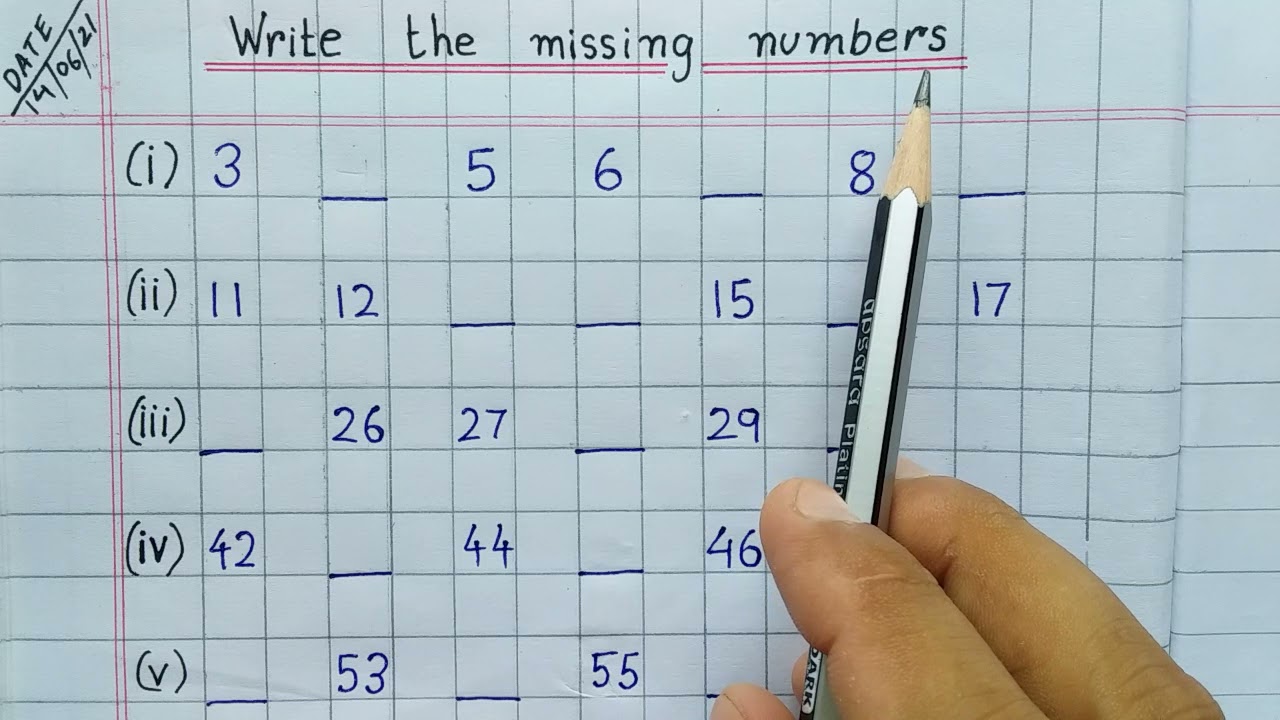 DATE
14/06/21
Write the missing numbers
(i) 3 _ 5 6 _ 8 _
(ii) 11 12 _ _ 15 _ 17
(iii) _ 26 27 _ 29 _
(iv) 42 _ 44 _ 46
(v) _ 53 _ 55 _
apsara
DARK